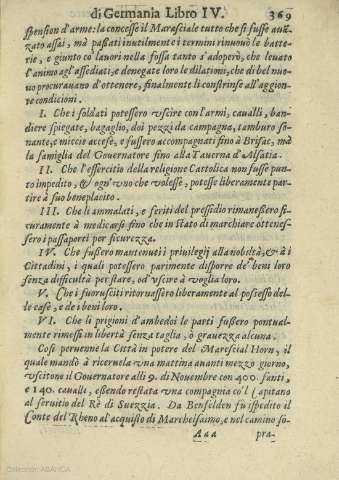 di Germania Libro IV. 369
spension d'arme: la concesse il Marasciale tutto che si fusse auã
zato assai, mà passati inutilmente i termini rinuouò le batte-
rie, e giunto co' lauori nella fossa tanto s'adoperò, che leuato
l'animo agl'assediati, e denegate loro le dilationi, che di bel nuo-
uo procurauano d'ottenere, finalmente li constrinse all'aggion-
re condicioni.
I. Che i soldati potessero vscire con l'armi, caualli, ban-
diere spiegate, bagaglio, doi pezzi da campagna, tamburo so-
nante, e miccie accese, e fussero accompagnati fino à Brisac, mà
la famiglia del Gouernatore fino alla Tauerna d'Alsatia.
II. Che l'essercitio della religione Cattolica non fusse pun-
to impedito, & ogn'vno che volesse, potesse liberamente par-
tire à suo beneplacito.
III. Che li ammalati, e feriti del pressidio rimanessero si-
curamente à medicarsi fino che in stato di marchiare ottenes-
sero i passaporti per sicurezza.
IV. Che fussero mantenuti i priuilegij alla nobiltà, & à i
Cittadini, i quali potessero parimente disporre de' beni loro
senza difficultà per stare, od vscire à voglia loro.
V. Che i fuorusciti ritornassero liberamente al possesso del-
le case, e de i beni loro.
VI. Che li prigioni d'ambedoi le parti fussero pontual-
mente rimessi in libertà senza taglia, ò grauezza alcuna.
Così peruenne la Città in potere del Marescial Horn, il
quale mandò à riceruela vna mattina auanti mezzo giorno,
vscitone il Gouernatore alli 9. di Nouembre con 400. fanti,
e 140. caualli, essendo restata vna compagnia co'l Capitano
al seruitio del Rè di Suezzia. Da Benfelden fù ispedito il
Conte del Rheno al acquisto di Marchelsaimo, e nel camino so-
Aaa pra-
Colección: ABANCA